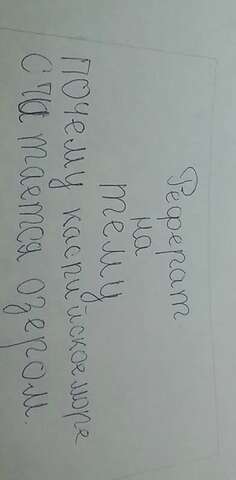 Реферат
на
тему
Почему каспийское море
считается озером.